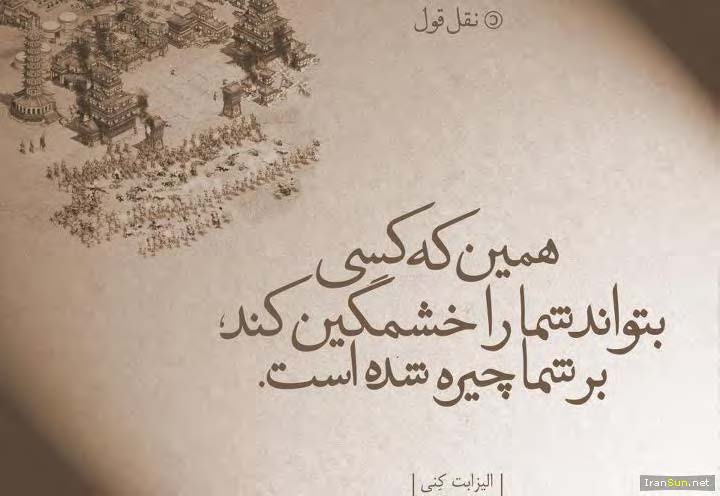 © نقل قول
همین که کسی
بتواند شما را خشمگین کند،
بر شما چیره شده است.
| الیزابت کِنی |
IranSun.net